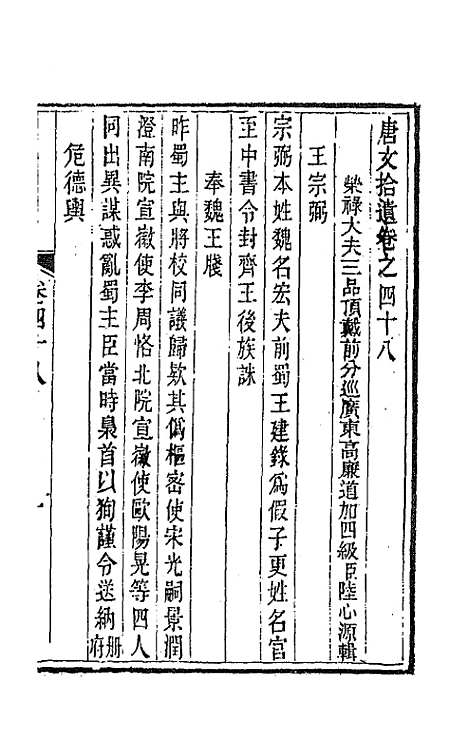 唐文拾遺卷之四十八
榮祿大夫三品頂戴前分巡廣東高廉道加四級臣陸心源輯
王宗弼
宗弼本姓魏名宏夫前蜀王建錄爲假子更姓名官
至中書令封齊王後族誅
奉魏王牋
昨蜀主與將校同議歸欵其僞樞密使宋光嗣景潤
澄南院宣徽使李周輅北院宣徽使歐陽晃等四人
同出異謀惑亂蜀主臣當時梟首以狥謹令送納册府
危德輿
卷四十八
一